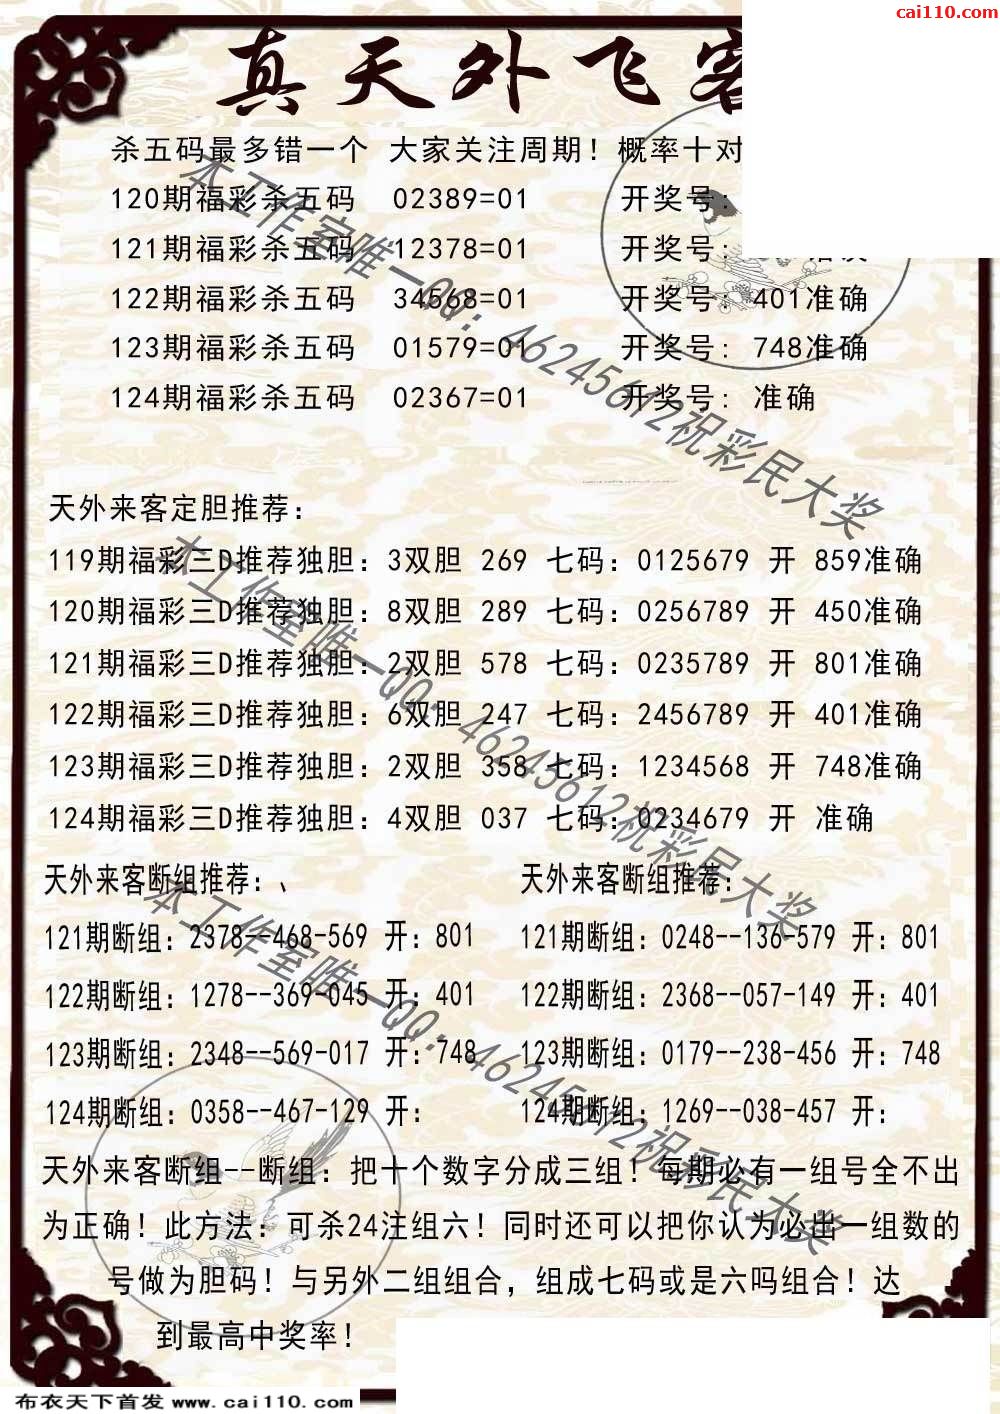 cai110.com
真天外飞客
杀五码最多错一个 大家关注周期！概率十对
120期福彩杀五码 02389=01 开奖号:
121期福彩杀五码 12378=01 开奖号:
122期福彩杀五码 34568=01 开奖号: 401准确
123期福彩杀五码 01579=01 开奖号: 748准确
124期福彩杀五码 02367=01 开奖号: 准确
天外来客定胆推荐:
119期福彩三D推荐独胆: 3双胆 269 七码: 0125679 开 859准确
120期福彩三D推荐独胆: 8双胆 289 七码: 0256789 开 450准确
121期福彩三D推荐独胆: 2双胆 578 七码: 0235789 开 801准确
122期福彩三D推荐独胆: 6双胆 247 七码: 2456789 开 401准确
123期福彩三D推荐独胆: 2双胆 358 七码: 1234568 开 748准确
124期福彩三D推荐独胆: 4双胆 037 七码: 0234679 开 准确
天外来客断组推荐: 、
121期断组: 2378--468-569 开: 801
122期断组: 1278--369-045 开: 401
123期断组: 2348--569-017 开: 748
124期断组: 0358--467-129 开:
天外来客断组推荐:
121期断组: 0248--136-579 开: 801
122期断组: 2368--057-149 开: 401
123期断组: 0179--238-456 开: 748
124期断组: 1269--038-457 开:
天外来客断组--断组: 把十个数字分成三组！每期必有一组号全不出
为正确！此方法: 可杀24注组六！同时还可以把你认为必出一组数的
号做为胆码！与另外二组组合，组成七码或是六吗组合！达
到最高中奖率！
本工作室唯一QQ: 46245612祝彩民大奖
本工作室唯一QQ: 46245612祝彩民大奖
本工作室唯一QQ: 46245612祝彩民大奖
布衣天下首发 www.cai110.com